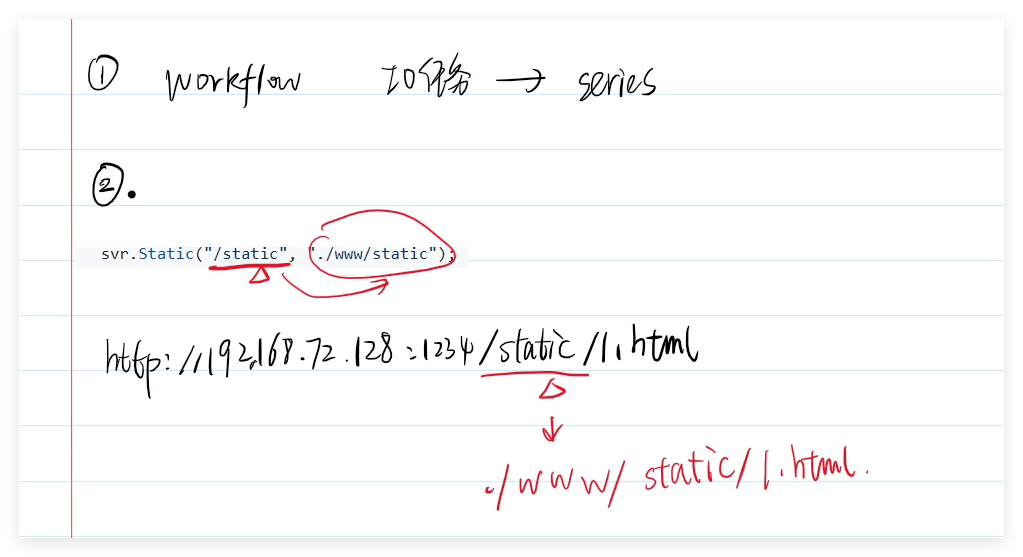 ① workflow IO任务 → series
②.
svr.Static("/static", "./www/static");
http://192.168.72.128:1234/static/1.html
./www/static/1.html.